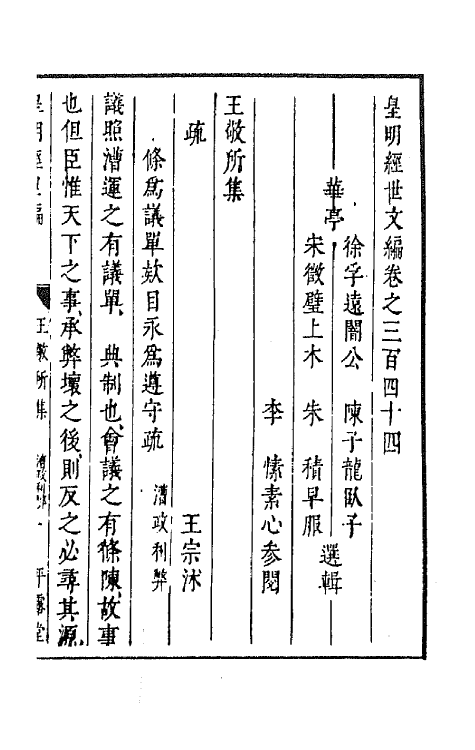 皇明經世文編卷之三百四十四
華亭
徐孚遠闇公 陳子龍臥子
宋徵璧上木 朱 積早服
選輯
李 愫素心參閱
王敬所集
王宗沐
疏
條為議單款目永為遵守疏 漕政利弊
議照漕運之有議單、典制也、會議之有條陳、故事
也但臣惟天下之事、承弊壞之後、則反之必尋其源、
皇明經世編 王敬所集 漕政利弊 一 平露堂